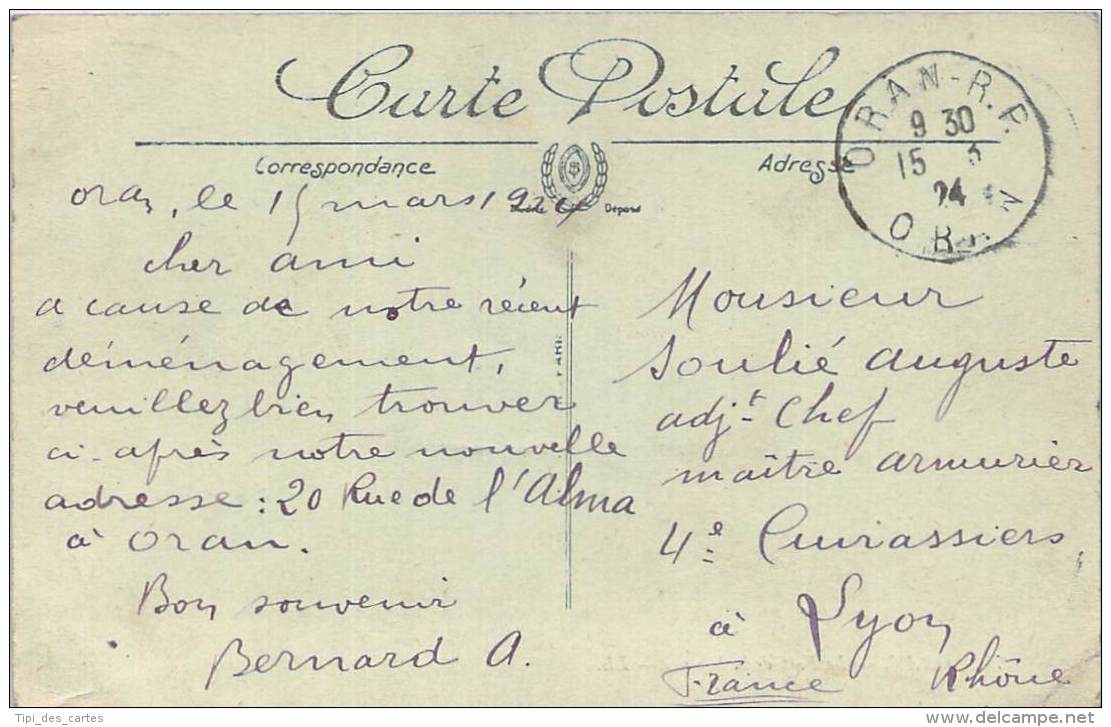 Carte Postale
Correspondance
Adresse
ORAN-R.P.
9 30
15 3
24
ORAN
Déposé
Oran, le 15 mars 1924
cher ami
a cause de notre récent
déménagement,
veuillez bien trouver
ci-après notre nouvelle
adresse : 20 Rue de l'Alma
à Oran.
Bon souvenir
Bernard A.
Monsieur
Soulié Auguste
adjt Chef
maître armurier
4e Cuirassiers,
à Lyon
France Rhône
Tipi_des_cartes
delcampe.net